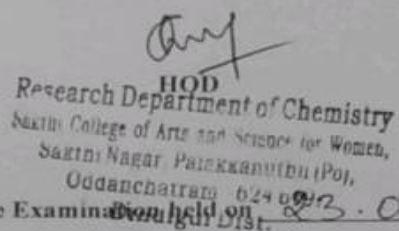 HOD
Research Department of Chemistry
Sakthi College of Arts and Science for Women,
Sakthi Nagar, Palakkanuthu (Po),
Oddanchatram 624
Dindigul Dist.
e Examination held on 23.0